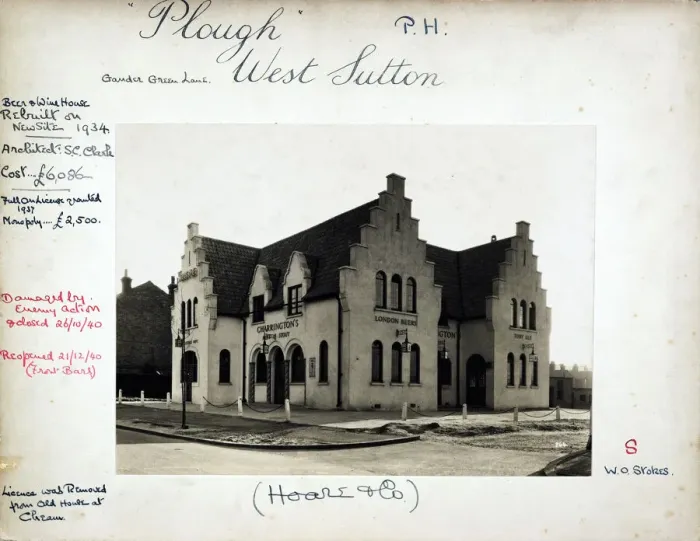 "Plough" P.H.
Gander Green Lane. West Sutton
Beer & Wine House
Rebuilt on
New Site 1934
Architect: S.C. Clark
Cost... £6,086
Full On Licence granted
1937
Monopoly.... £2,500.
Damaged by
Enemy action
& closed 26/10/40
Reopened 21/12/40
(Front Bars)
Licence was Removed
from Old House at
Cheam.
CHARRINGTON'S
LONDON BEERS
S
W.O. Stokes.
(Hoare & Co)